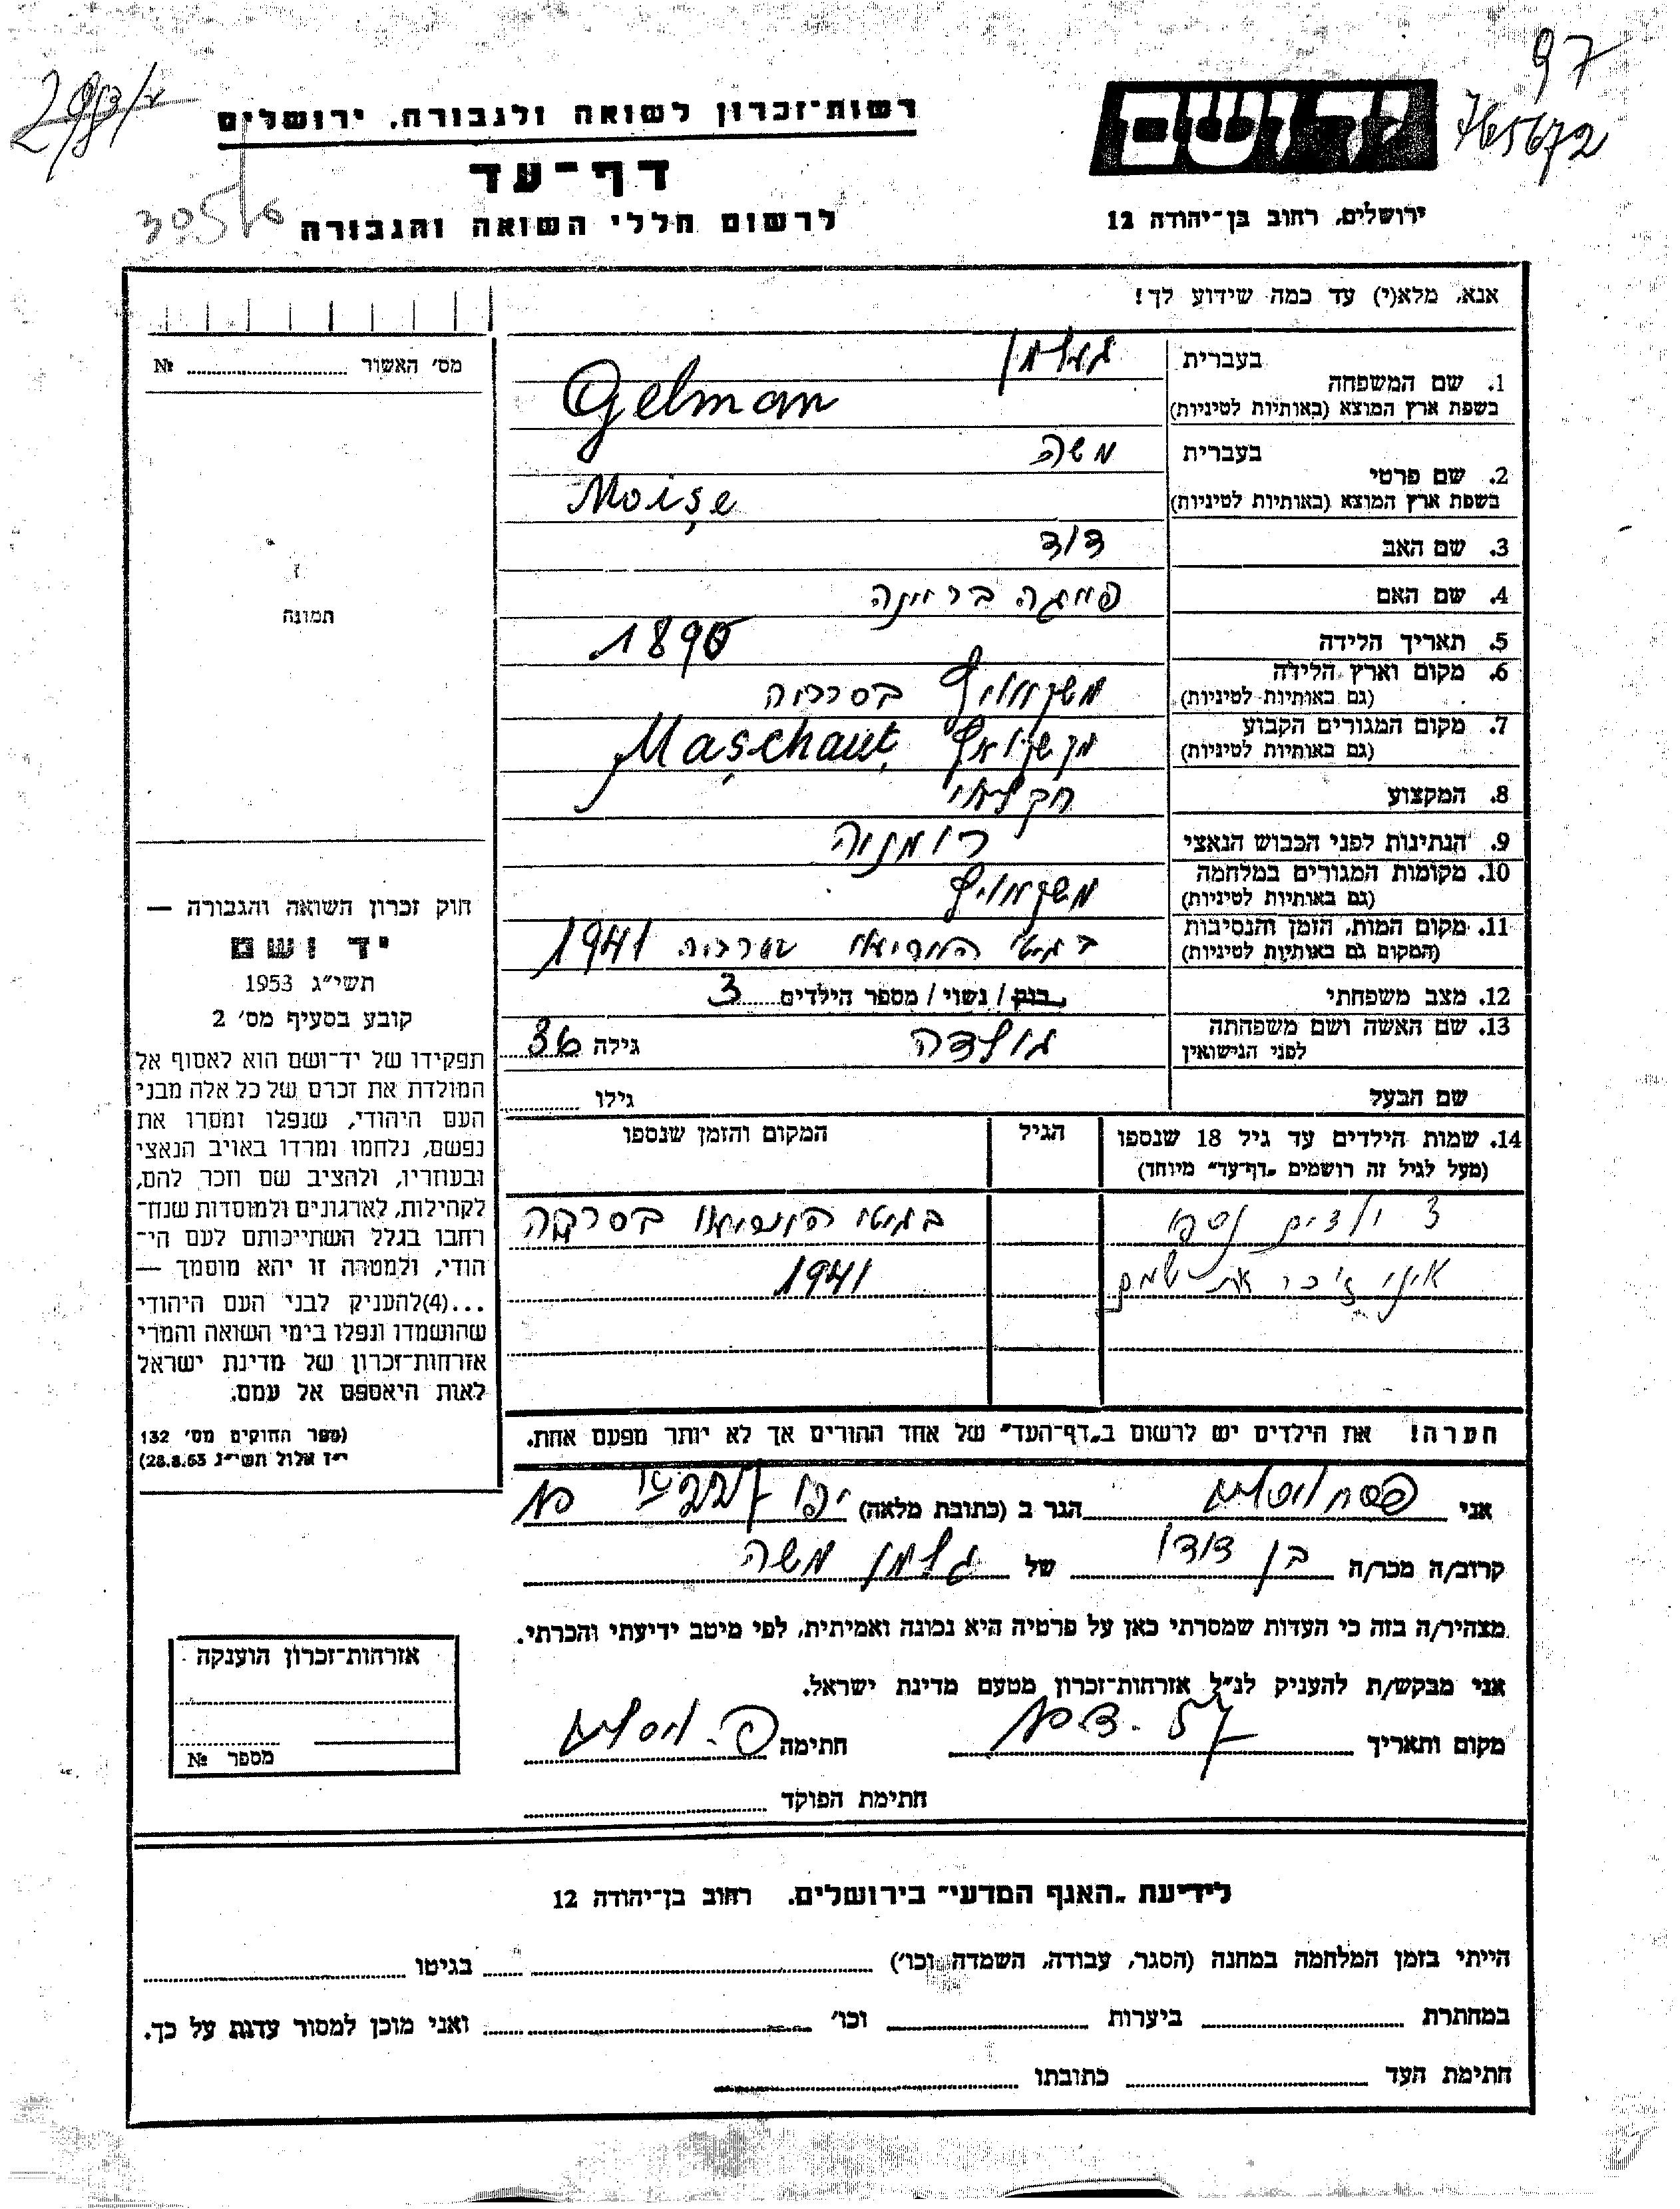 97
765672
רשות־זכרון לשואה ולגבורה, ירושלים
יד ושם
דף־עד
לרשום חללי השואה והגבורה
ירושלים, רחוב בן־יהודה 12
אנא, מלא(י) עד כמה שידוע לך!
מס׳ האשור № 
1. שם המשפחה בעברית גלמן
בשפת ארץ המוצא (באותיות לטיניות) Gelman
2. שם פרטי בעברית משה
בשפת ארץ המוצא (באותיות לטיניות) Moişe
3. שם האב דוד
4. שם האם
5. תאריך הלידה
6. מקום וארץ הלידה
(גם באותיות לטיניות)
7. מקום המגורים הקבוע
(גם באותיות לטיניות) Maşchauţ
8. המקצוע חקלאי
9. הנתינות לפני הכבוש הנאצי רומניה
10. מקומות המגורים במלחמה
(גם באותיות לטיניות)
11. מקום המות, הזמן והנסיבות 1941
(המקום גם באותיות לטיניות)
12. מצב משפחתי רוק / נשוי / מספר הילדים 3
13. שם האשה ושם משפחתה גולדה גילה 36
לפני הנישואין
שם הבעל גילו
14. שמות הילדים עד גיל 18 שנספו הגיל המקום והזמן שנספו
(מעל לגיל זה רושמים „דף־עד״ מיוחד)
3 ילדים נספו בגיטו
איני זוכר את שמם 1941
הערה! את הילדים יש לרשום ב„דף־העד״ של אחד ההורים אך לא יותר מפעם אחת.
תמונה
חוק זכרון השואה והגבורה —
יד ושם
תשי״ג 1953
קובע בסעיף מס׳ 2
תפקידו של יד־ושם הוא לאסוף אל
המולדת את זכרם של כל אלה מבני
העם היהודי, שנפלו ומסרו את
נפשם, נלחמו ומרדו באויב הנאצי
ובעוזריו, ולהציב שם וזכר להם,
לקהילות, לארגונים ולמוסדות שנח־
רבו בגלל השתייכותם לעם הי־
הודי, ולמטרה זו יהא מוסמך —
...(4)להעניק לבני העם היהודי
שהושמדו ונפלו בימי השואה והמרי
אזרחות־זכרון של מדינת ישראל
לאות היאספם אל עמם.
(ספר החוקים מס׳ 132
י״ז אלול תשי״ג 28.8.53)
אני פסח הגר ב (כתובת מלאה)
קרוב/ה מכר/ה בן דודו של גלמן משה
מצהיר/ה בזה כי העדות שמסרתי כאן על פרטיה היא נכונה ואמיתית, לפי מיטב ידיעתי והכרתי.
אני מבקש/ת להעניק לנ״ל אזרחות־זכרון מטעם מדינת ישראל.
מקום ותאריך חתימה
חתימת הפוקד
אזרחות־זכרון הוענקה
מספר №
לידיעת „האגף המדעי״ בירושלים, רחוב בן־יהודה 12
הייתי בזמן המלחמה במחנה (הסגר, עבודה, השמדה וכו׳) בגיטו
במחתרת ביערות וכו׳ ואני מוכן למסור עדות על כך.
חתימת העד כתובתו